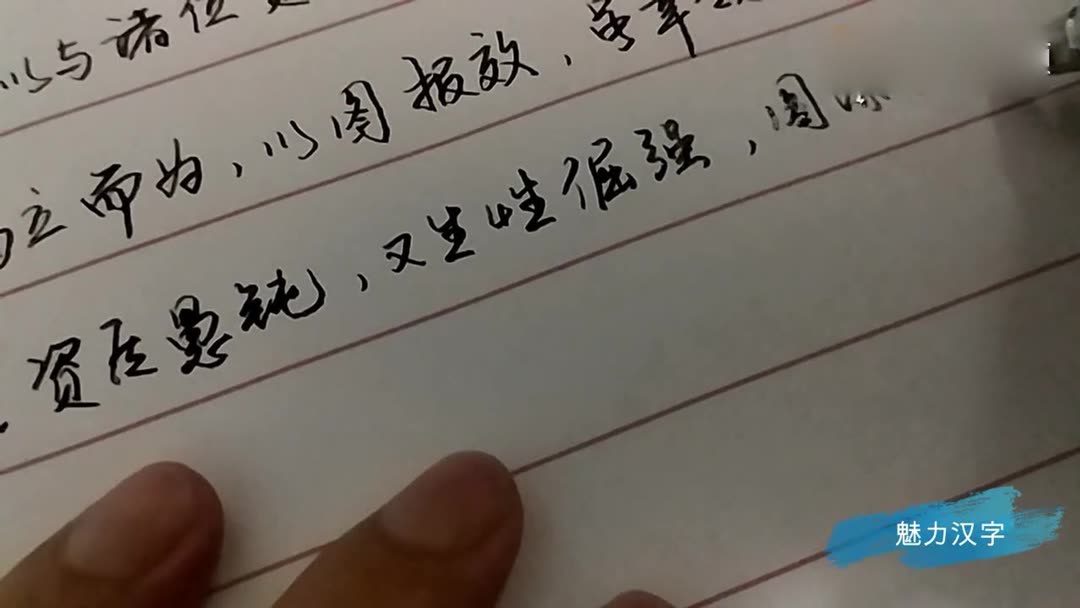 以与诸位
立而为，以图报效，虽幸
资质愚钝，又生性倔强，周
魅力汉字